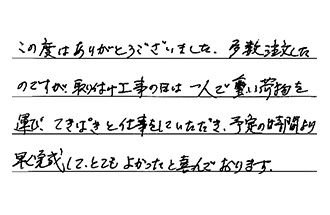 この度はありがとうございました。多数注文した
のですが、取り付け工事の日は一人で重い荷物を
運び、てきぱきと仕事をしていただき、予定の時間より
早く完成して、とてもよかったと喜んでおります。